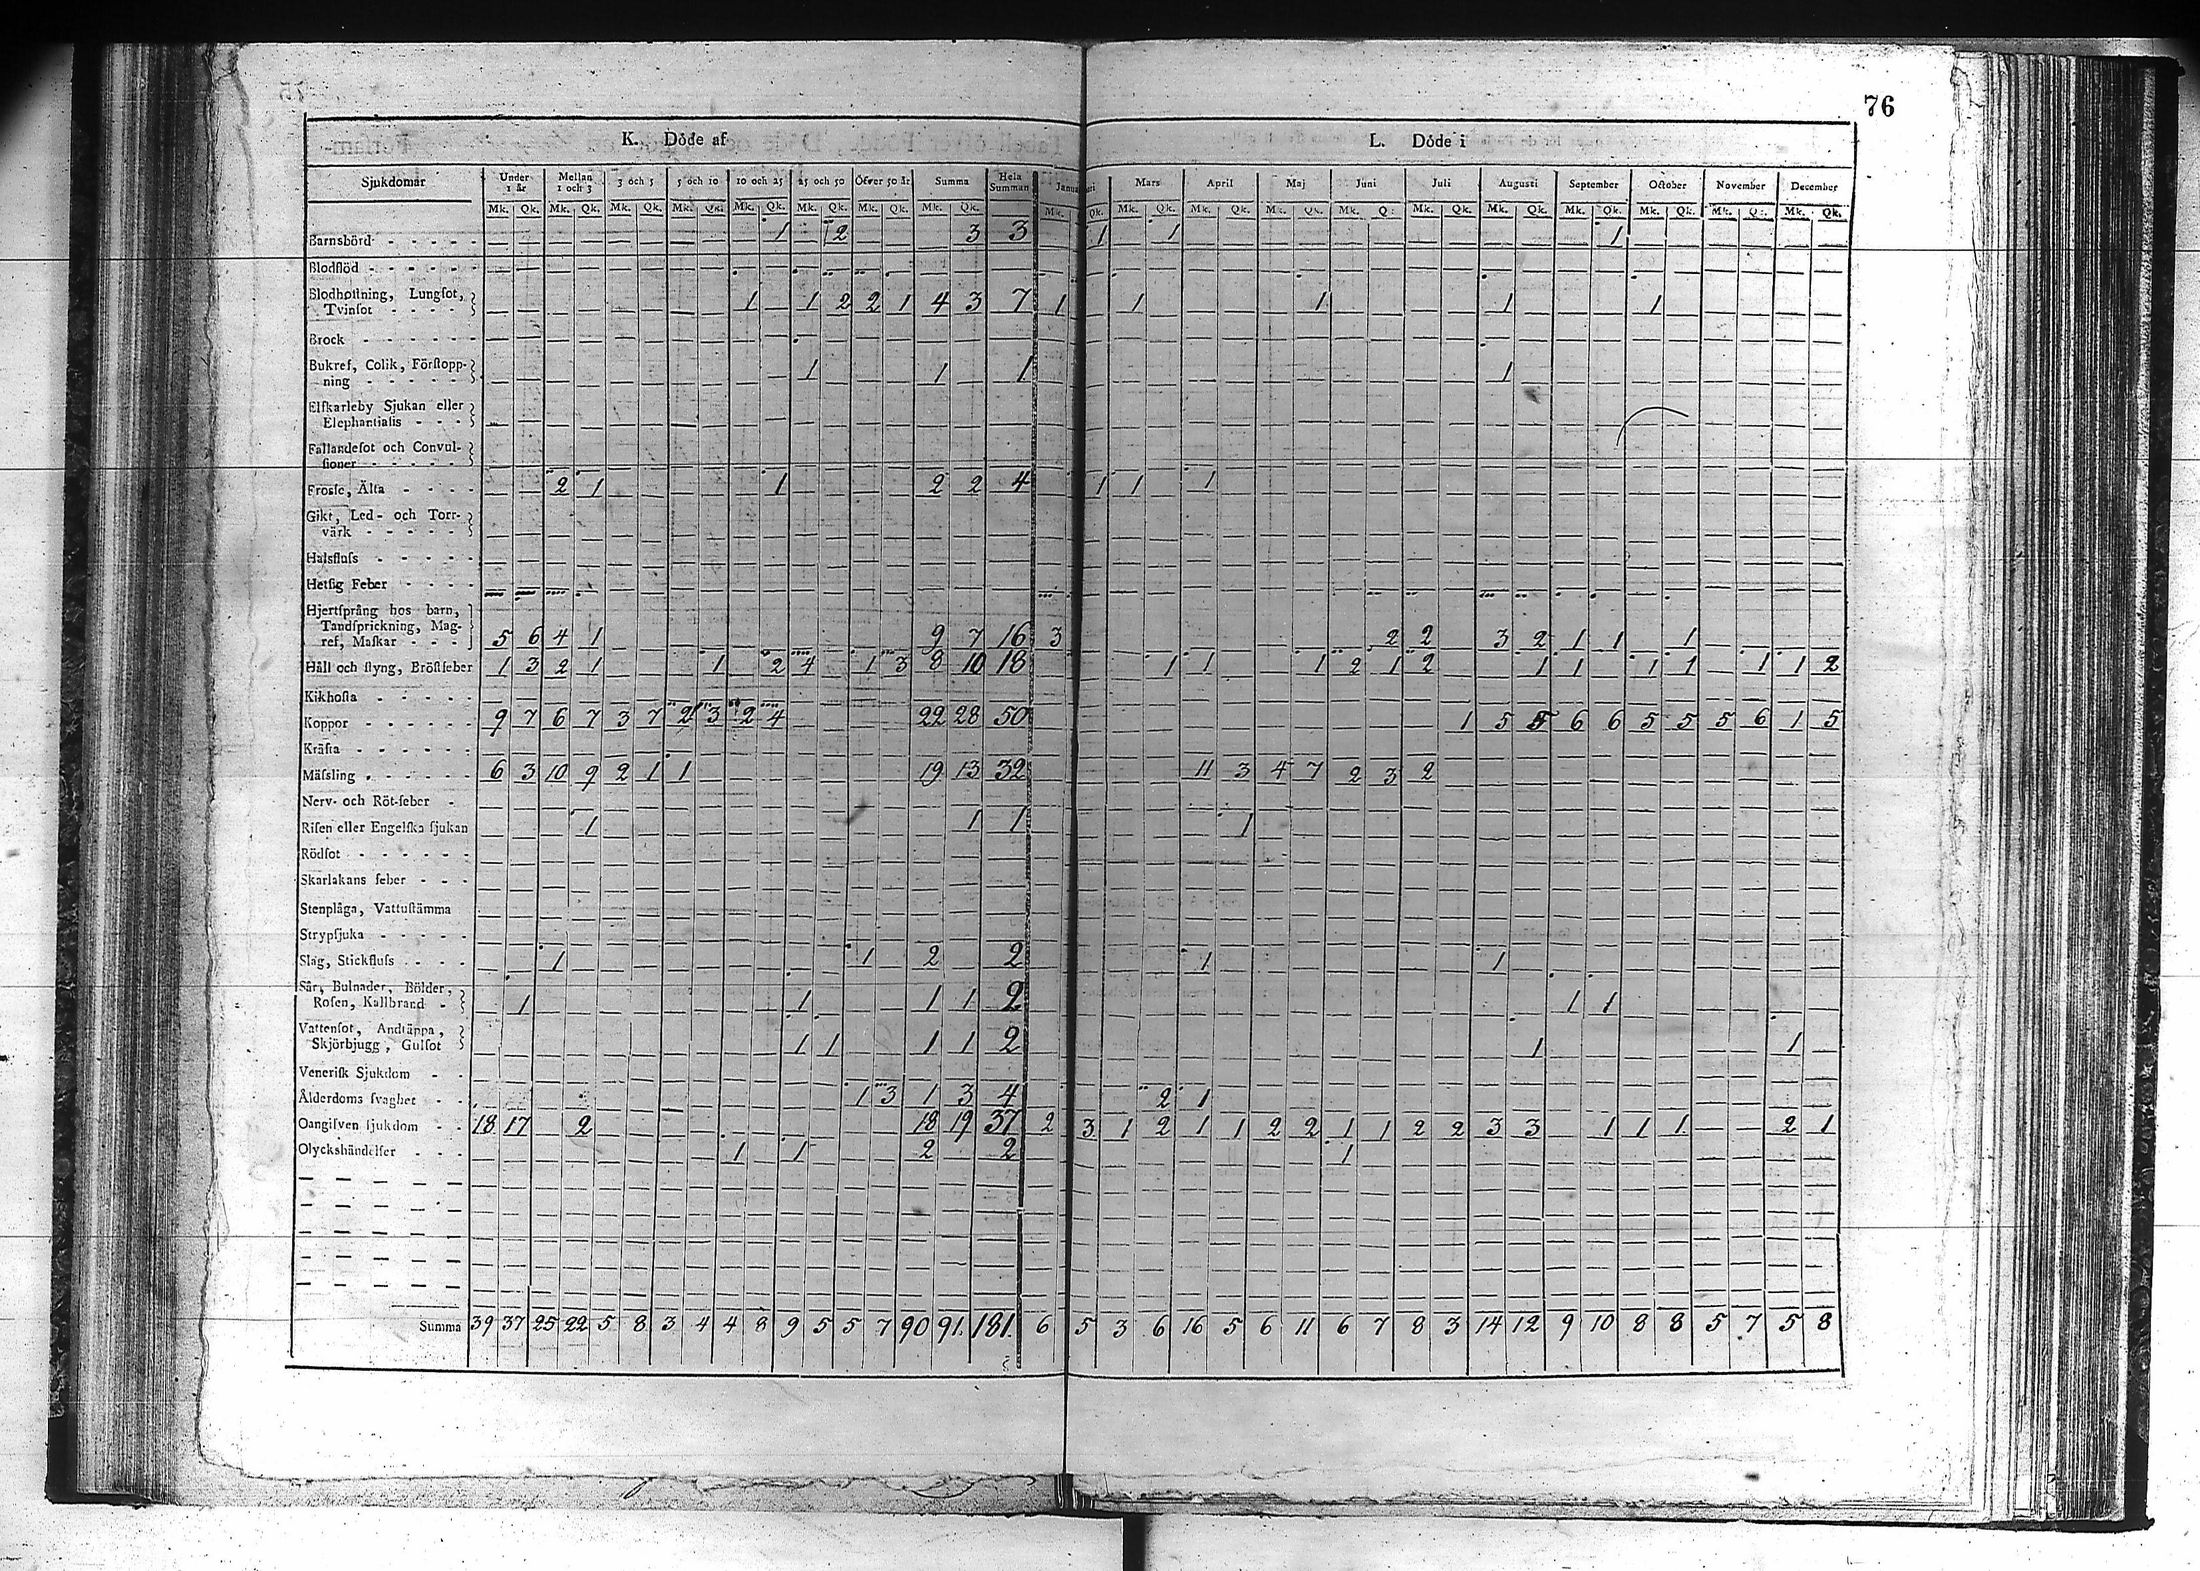 76
K. Döde af L. Döde i
Sjukdomar Under 1 år Mellan 1 och 3 3 och 5 5 och 10 10 och 25 25 och 50 Öfver 50 år Summa Hela Summan Januari Mars April Maj Juni Juli Augusti September October November December
Mk. Qk. Mk. Qk. Mk. Qk. Mk. Qk. Mk. Qk. Mk. Qk. Mk. Qk. Mk. Qk. Mk. Qk. Mk. Qk. Mk. Qk. Mk. Qk. Mk. Q. Mk. Qk. Mk. Qk. Mk. Qk. Mk. Qk. Mk. Q. Mk. Qk.
Barnsbörd 1 2 3 3 1 1 1
Blodflöd
Blodhostning, Lungsot,
Tvinsot 1 1 2 2 1 4 3 7 1 1 1 1 1
Brock
Bukref, Colik, Förstopp-
ning 1 1 1 1
Elfkarleby Sjukan eller
Elephantiasis
Fallandesot och Convul-
sioner
Frosse, Älta 2 1 1 2 2 4 1 1 1
Gikt, Led- och Torr-
värk
Halsfluss
Hetsig Feber
Hjertsprång hos barn,
Tandsprickning, Mag-
ref, Maskar 5 6 4 1 9 7 16 3 2 2 3 2 1 1 1
Håll och styng, Bröstfeber 1 3 2 1 1 2 4 1 3 8 10 18 1 1 1 2 1 2 1 1 1 1 1 1 2
Kikhosta
Koppor 9 7 6 7 3 7 2 3 2 4 22 28 50 1 5 5 6 6 5 5 5 6 1 5
Kräfta
Mässling 6 3 10 9 2 1 1 19 13 32 11 3 4 7 2 3 2
Nerv- och Röt-feber
Risen eller Engelska sjukan 1 1 1 1
Rödsot
Skarlakans feber
Stenplåga, Vattustämma
Strypsjuka
Slag, Stickfluss 1 1 2 2 1 1
Sår, Bulnader, Bölder,
Rosen, Kallbrand 1 1 1 1 2 1 1
Vattensot, Andtäppa,
Skjörbjugg, Gulsot 1 1 1 1 2 1 1
Venerisk Sjukdom
Ålderdoms svaghet 1 3 1 3 4 2 1
Oangifven sjukdom 18 17 2 18 19 37 2 3 1 2 1 1 2 2 1 1 2 2 3 3 1 1 1 2 1
Olyckshändelser 1 1 2 2 1
Summa 39 37 25 22 5 8 3 4 4 8 9 5 5 7 90 91. 181. 6 5 3 6 16 5 6 11 6 7 8 3 14 12 9 10 8 8 5 7 5 8